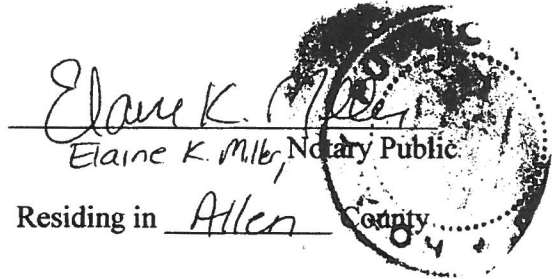 Elaine K. Miller
Elaine K. Miller, Notary Public
Residing in Allen County